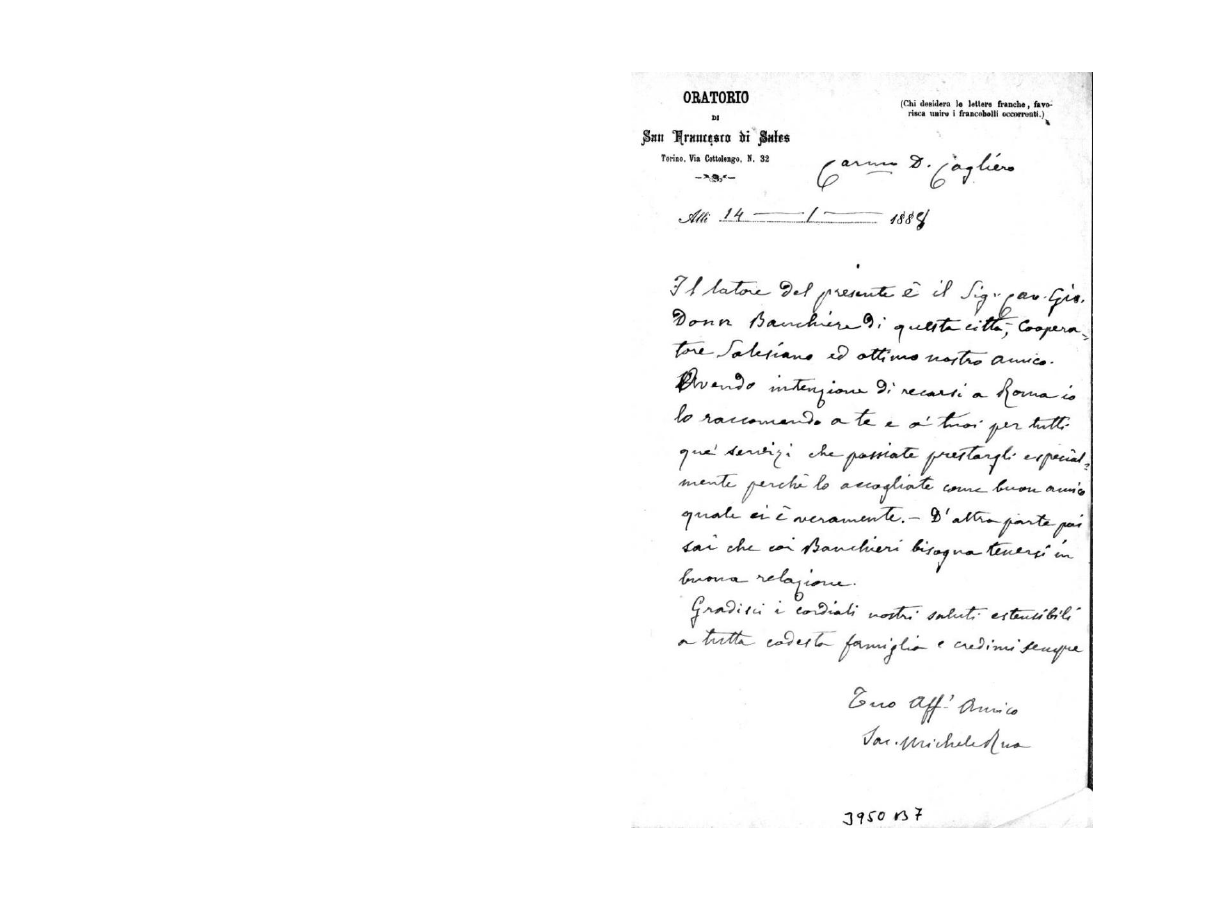 ORATORIO
DI
San Francesco di Sales
Torino, Via Cottolengo, N. 32
(Chi desidera le lettere franche, favo-
risca unire i francobolli occorrenti.)
Carmo D. Cagliero
Alli 14 — 1 — 1888
Il latore del presente è il Sig.r Cav. Gio.
Donn Banchiere di questa città, Coopera-
tore Salesiano ed ottimo nostro amico.
Avendo intenzione di recarsi a Roma io
lo raccomando a te e a' tuoi per tutti
que' servizi che possiate prestargli especial-
mente perchè lo accogliate come buon amico
quale ei è veramente. - D'altra parte poi
sai che coi Banchieri bisogna tenersi in
buona relazione.
Gradisci i cordiali nostri saluti estensibili
a tutta codesta famiglia e credimi sempre
Tuo Aff.o Amico
Sac. Michele Rua
3950 B 7